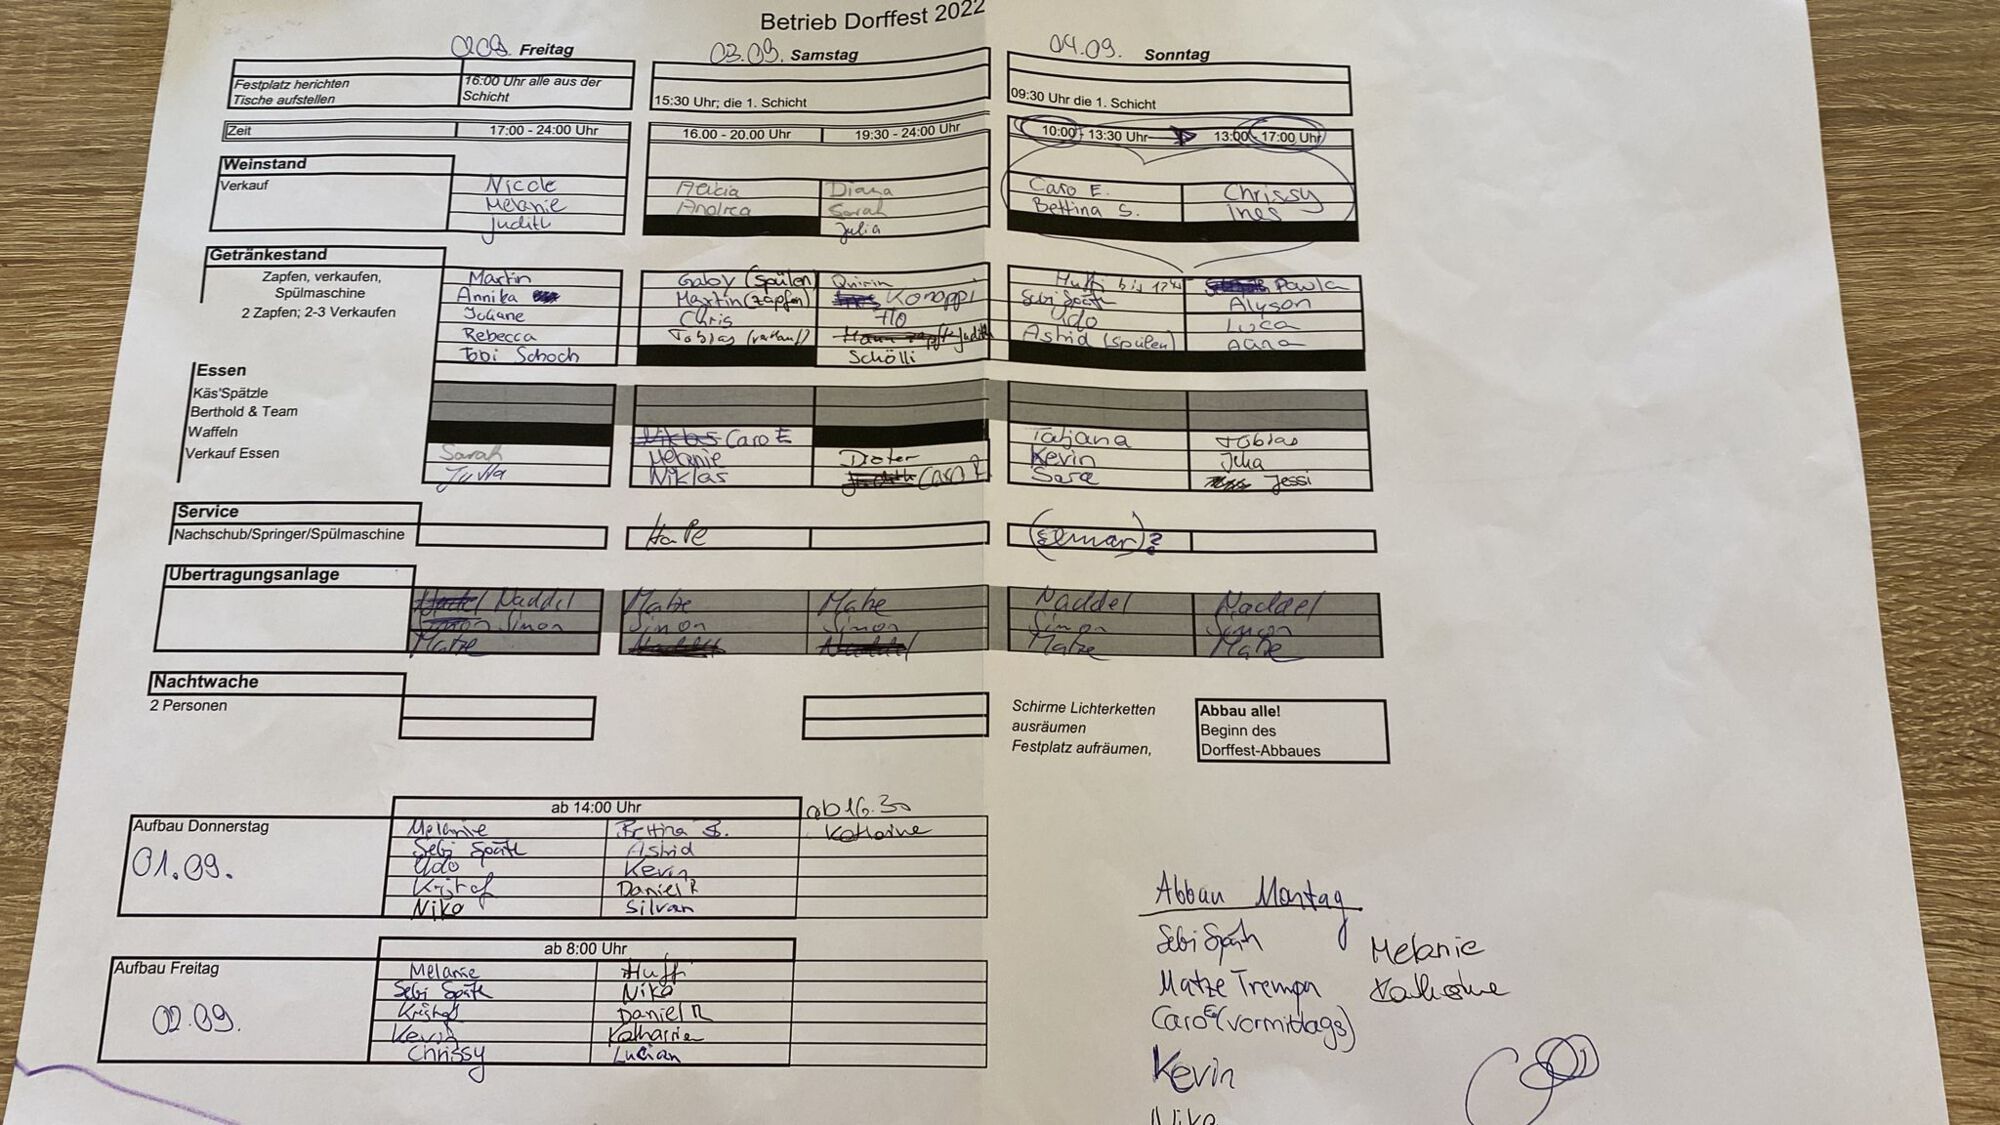 Betrieb Dorffest 2022
02.09. Freitag
03.09. Samstag
04.09. Sonntag
Festplatz herichten
Tische aufstellen
16:00 Uhr alle aus der
Schicht
15:30 Uhr; die 1. Schicht
09:30 Uhr die 1. Schicht
Zeit
17:00 - 24:00 Uhr
16.00 - 20.00 Uhr
19:30 - 24:00 Uhr
10:00 - 13:30 Uhr
13:00 - 17:00 Uhr
Weinstand
Verkauf
Nicole
Melanie
Judith
Alicia
Andrea
Diana
Sarah
Julia
Caro E.
Bettina S.
Chrissy
Ines
Getränkestand
Zapfen, verkaufen,
Spülmaschine
2 Zapfen; 2-3 Verkaufen
Martin
Annika
Juliane
Rebecca
Tobi Schoch
Gaby (spülen)
Martin (zapfen)
Chris
Tobias (verkauf)
Quirin
Konappi
Flo
Judith
Schölli
Huffi bis 12
Sebi Späth
Udo
Astrid (spülen)
Paula
Alyson
Luca
Essen
Käs'Spätzle
Berthold & Team
Waffeln
Verkauf Essen
Sarah
Jutta
Niklas Caro E
Melanie
Niklas
Dieter
Caro
Tatjana
Kevin
Sara
Tobias
Julia
Jessi
Service
Nachschub/Springer/Spülmaschine
HaPe
(Elmar)?
Übertragungsanlage
Naddel
Simon Simon
Matze
Matze
Simon
Naddel
Matze
Simon
Naddel
Naddel
Simon
Matze
Naddel
Simon
Matze
Nachtwache
2 Personen
Schirme Lichterketten
ausräumen
Festplatz aufräumen,
Abbau alle!
Beginn des
Dorffest-Abbaues
ab 14:00 Uhr
ab 16.30
Aufbau Donnerstag
01.09.
Melanie
Sebi Späth
Udo
Kristof
Niko
Bettina S.
Astrid
Kevin
Daniel R
Silvan
Katharine
ab 8:00 Uhr
Aufbau Freitag
02.09.
Melanie
Sebi Späth
Kristof
Kevin
Chrissy
Huffi
Niko
Daniel R
Katharine
Lucian
Abbau Montag
Sebi Späth
Matze Trempn
Caro E. (vormittags)
Kevin
Niko
Melanie
Katharine